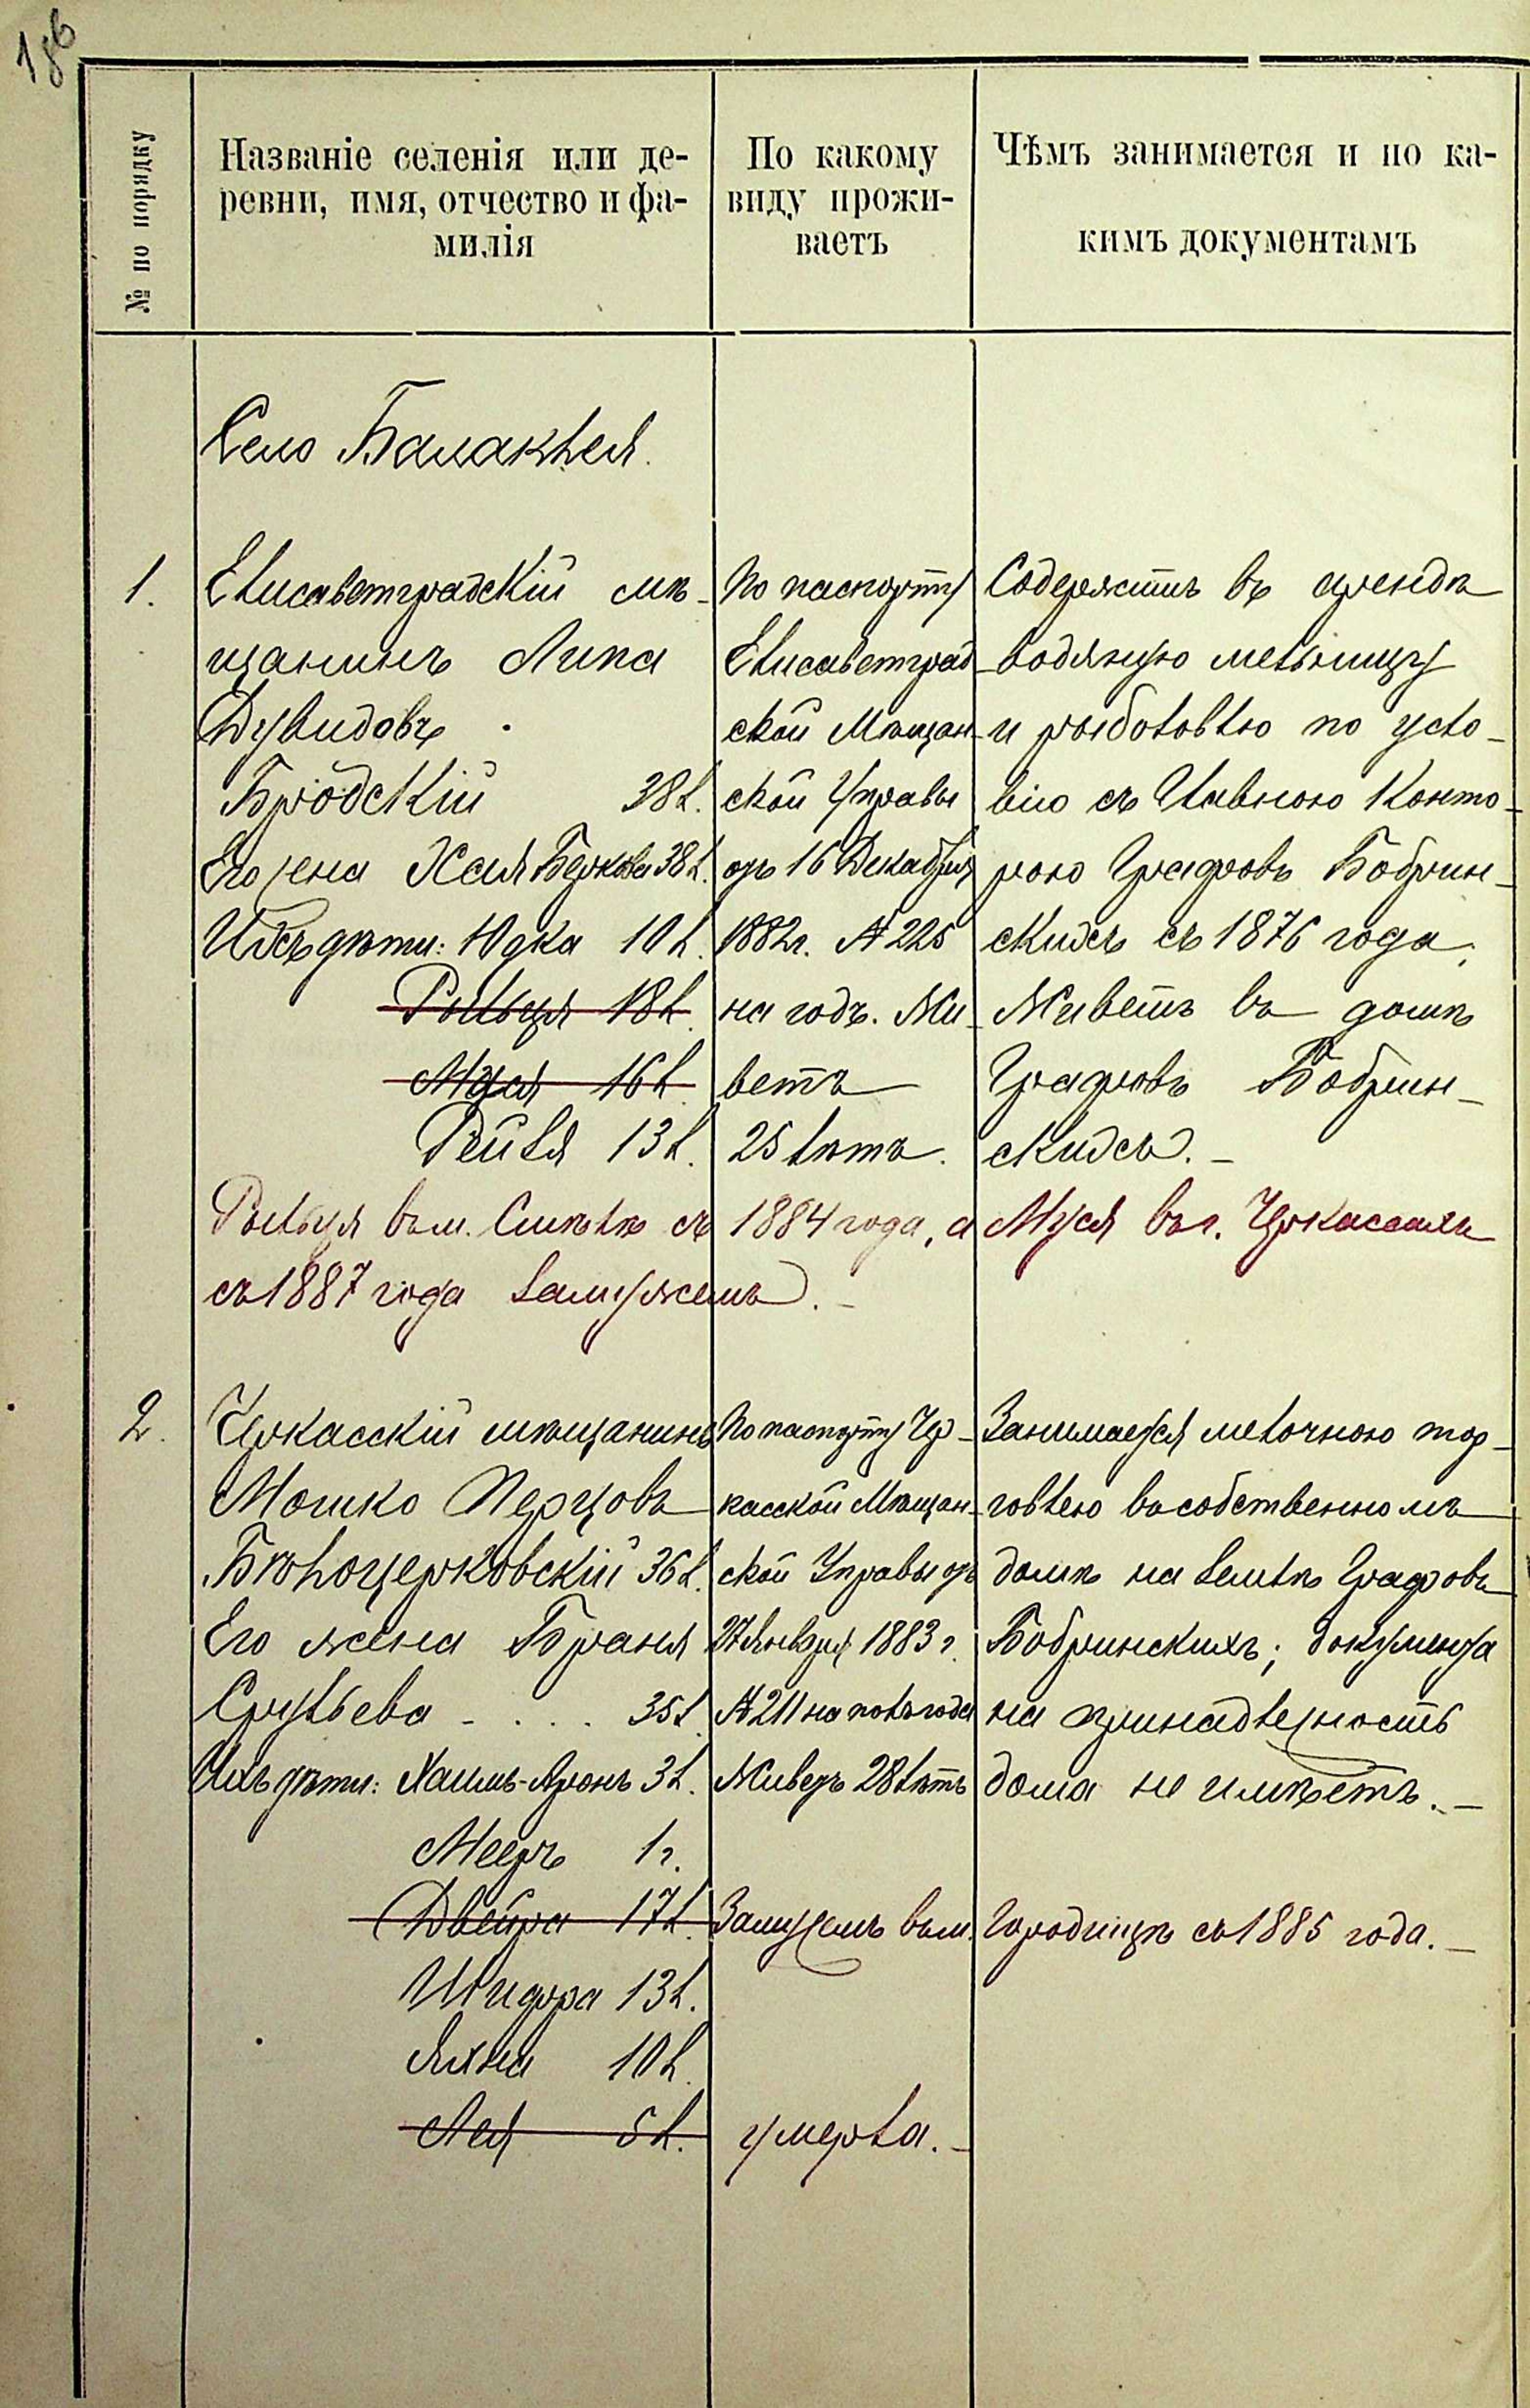 186
№ по порядку
Названіе селенія или де-
ревни, имя, отчество и фа-
милія
По какому
виду прожи-
ваетъ
Чѣмъ занимается и по ка-
кимъ документамъ
Село Балаклея.
1.
Елисаветградскій мѣ-
щанинъ Липа
Дувидовъ
Бродскій 38 л.
Его жена Хая Беркова 38 л.
Ихъ дѣти: Юдка 10 л.
Рыльця 18 л.
Муся 16 л.
Рейзя 13 л.
По паспорту
Елисаветград
ской Мѣщан-
ской Управы
отъ 16 Декабря
1882 г. № 225
на годъ. Жи-
ветъ
25 лѣтъ.
Содержитъ въ арендѣ
водяную мельницу
и рыболовлю по усло-
вію съ Главною Конто-
рою Графовъ Бобрин-
скихъ съ 1876 года.
Живетъ въ домѣ
Графовъ Бобрин-
скихъ. -
Рыльця въ м. Смѣлѣ съ 1884 года, а Муся въ г. Черкассахъ
съ 1887 года замужемъ. -
2.
Черкасскій мѣщанинъ
Мошко Перцовъ
Бѣлоцерковскій 36 л.
Его жена Браня
Срульева - . . . 35 л.
Ихъ дѣти: Хаимъ-Аронъ 3 л.
Мееръ 1 г.
Двейра 17 л.
Шифра 13 л.
Яхна 10 л.
Лея 5 л.
По паспорту Чер-
касской Мѣщан-
ской Управы отъ
27 Января 1883 г.
№ 211 на полъ года
Живетъ 28 лѣтъ
Занимается мелочною тор-
говлею въ собственномъ
домѣ на землѣ Графовъ
Бобринскихъ; документа
на принадлежность
дома не имѣетъ. -
Замужемъ въ м. Городищѣ съ 1885 года. -
умерла. -